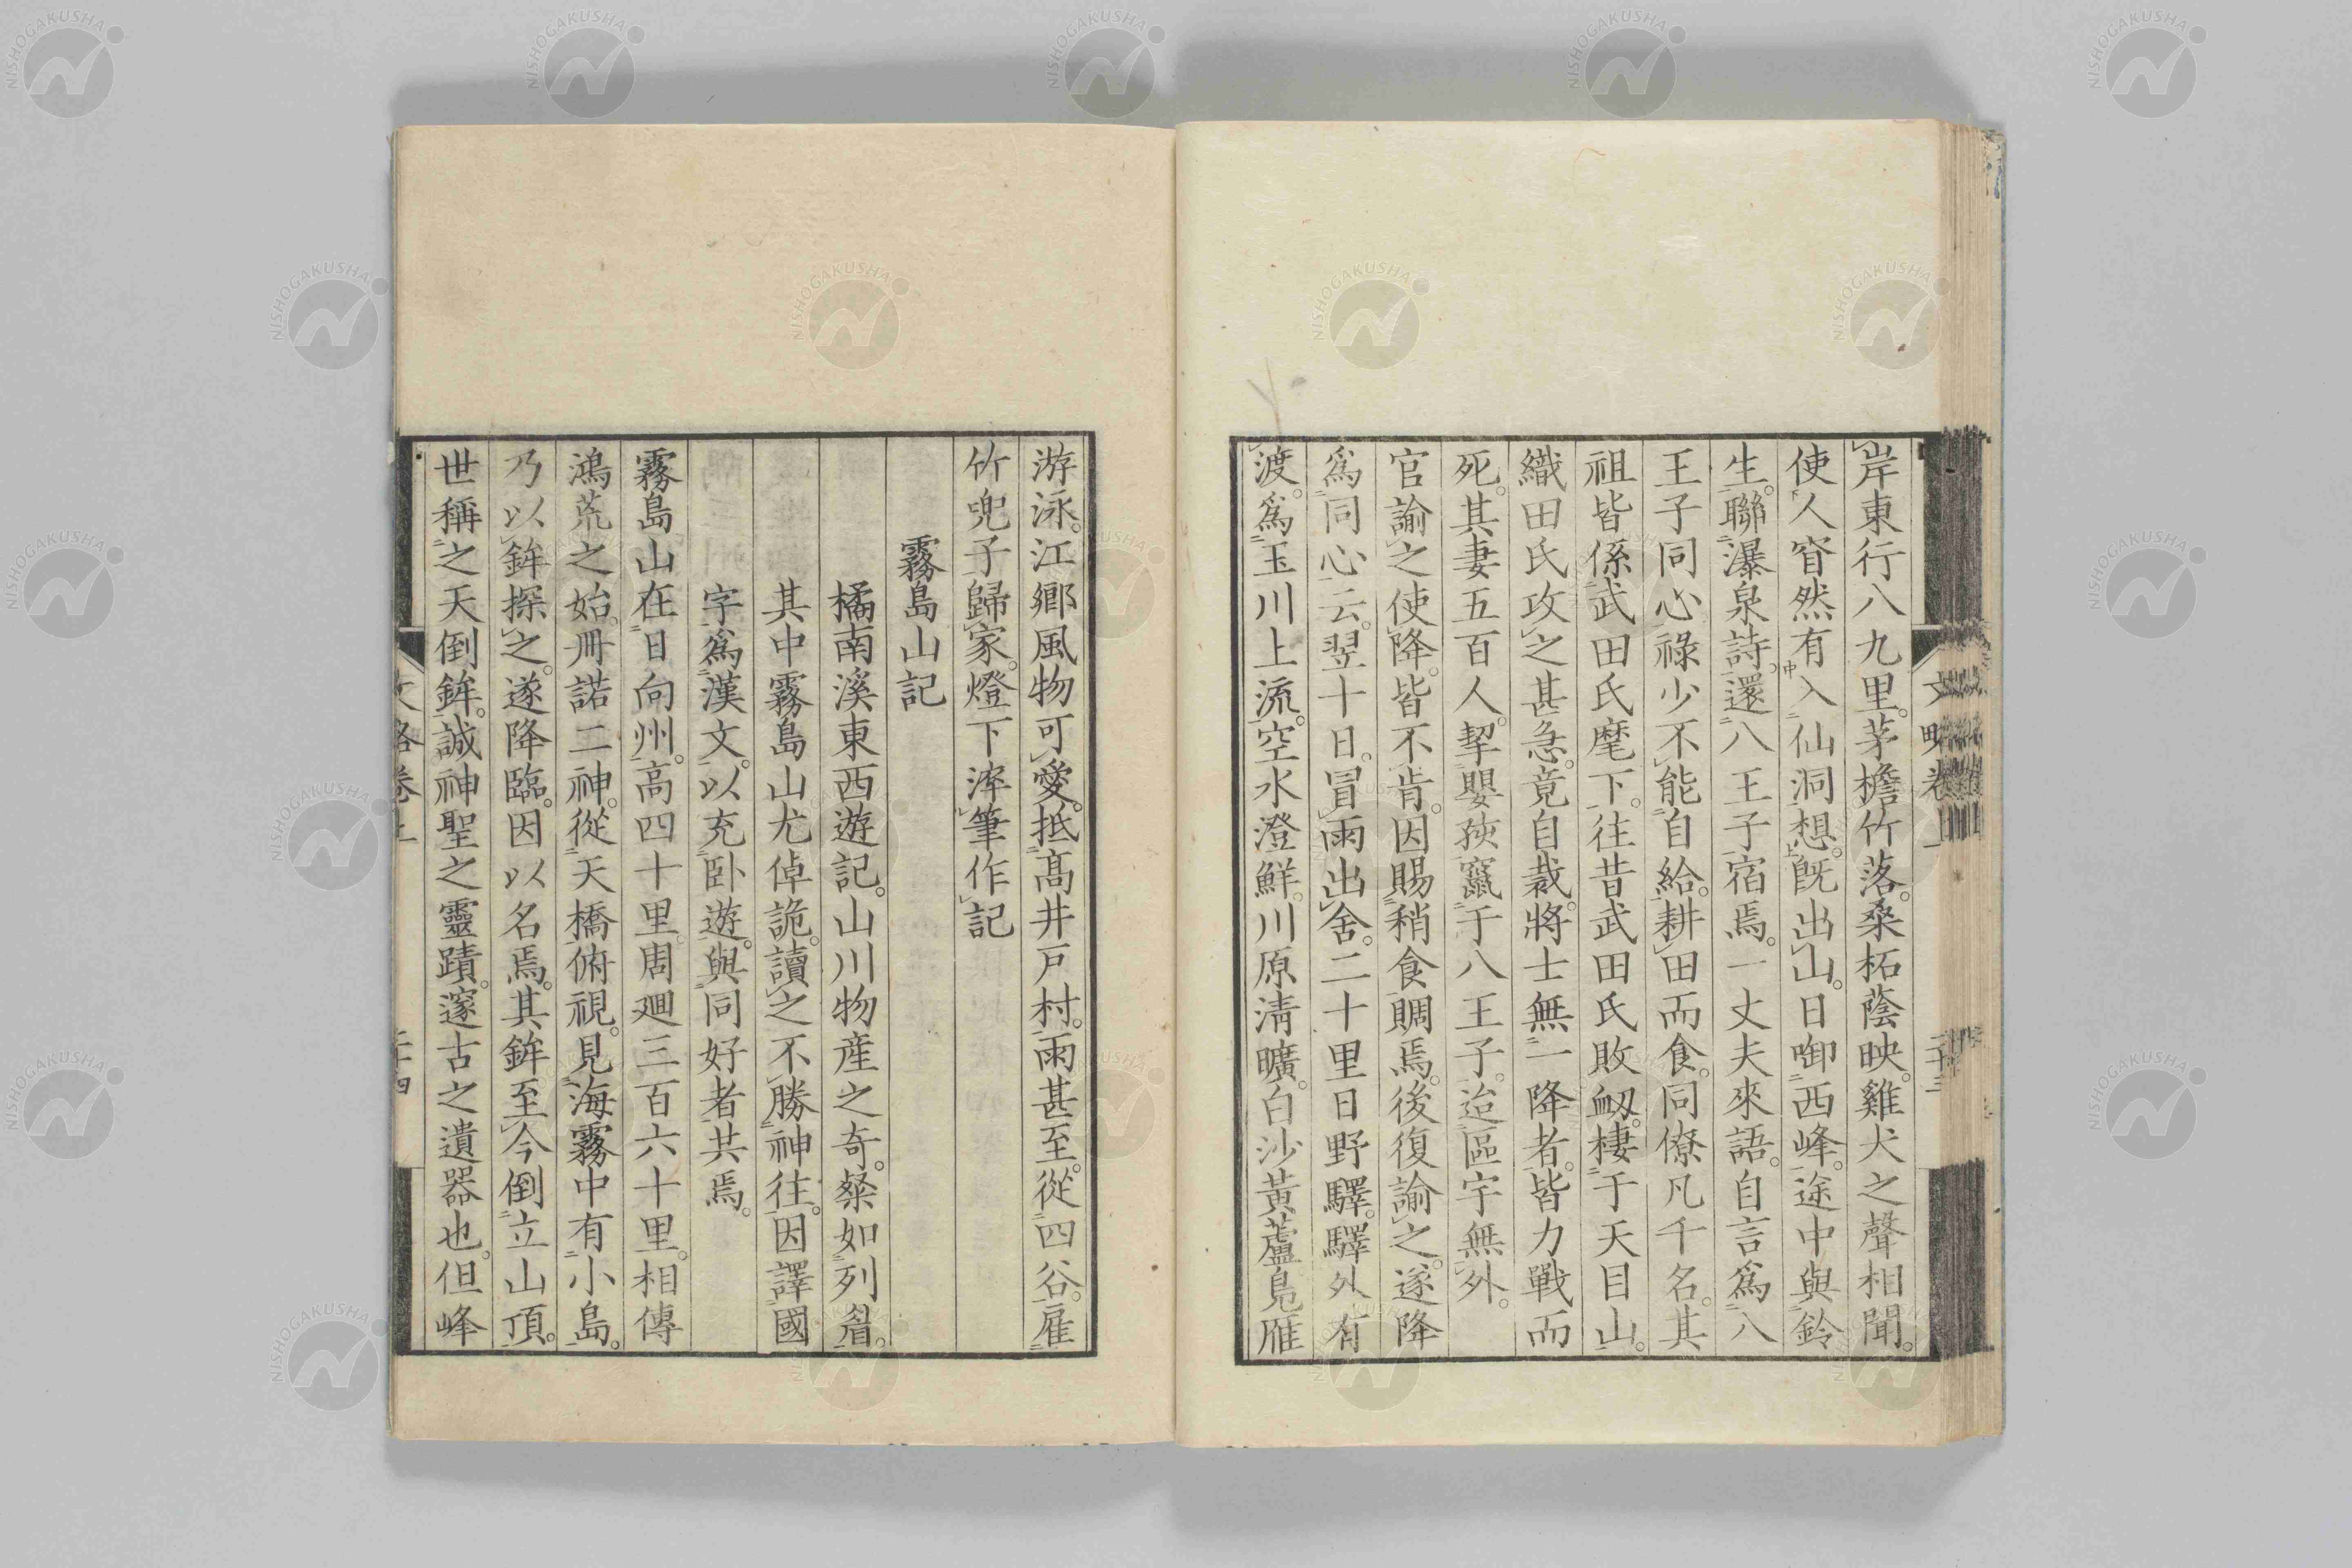 岸東行八九里。茅檐竹落。桑柘蔭映。雞犬之聲相聞。
使人窅然有入仙洞想。既出山。日啣西峰。途中與鈴
生。聯瀑泉詩。還八王子宿焉。一丈夫來語。自言爲八
王子同心祿少不能自給。耕田而食。同僚凡千名。其
祖皆係武田氏麾下。往昔武田氏敗衂。棲于天目山。
織田氏攻之甚急。竟自裁。將士無一降者。皆力戰而
死。其妻五百人。挈嬰孩竄于八王子。迨區宇無外。
官諭之使降。皆不肯。因賜稍食賙焉。後復諭之。遂降
爲同心云。翌十日。冒雨出舍。二十里日野驛。驛外有
渡。爲玉川上流。空水澄鮮。川原淸曠。白沙黃蘆鳧雁
文略卷上
二十三
游泳。江鄉風物可愛。抵高井戶村。雨甚至。從四谷。雇
竹兜子歸家。燈下滓筆作記
霧島山記
橘南溪東西遊記。山川物産之奇。粲如列眉。
其中霧島山尤倬詭。讀之不勝神往。因譯國
字爲漢文。以充臥遊。與同好者共焉。
霧島山在日向州。高四十里。周廻三百六十里。相傳
鴻荒之始。冊諾二神。從天橋俯視。見海霧中有小島。
乃以鉾探之。遂降臨。因以名焉。其鉾至今倒立山頂。
世稱之天倒鉾。誠神聖之靈蹟。邃古之遺器也。但峰
文略卷上
二十四
NISHOGAKUSHA